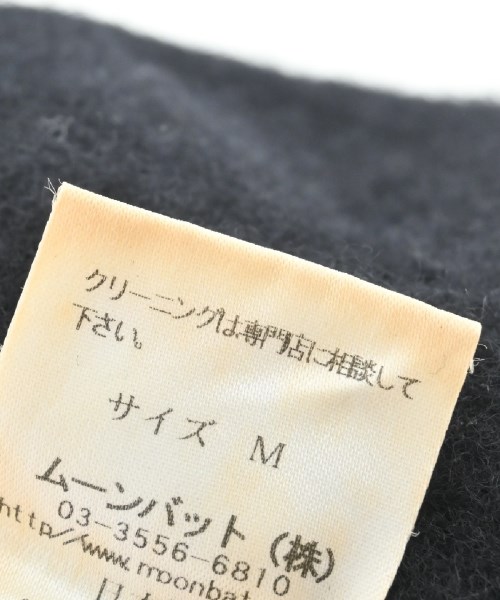 クリーニングは専門店に相談して
下さい。
サイズ M
ムーンバット(株)
03-3556-6810
http//www.moonbat